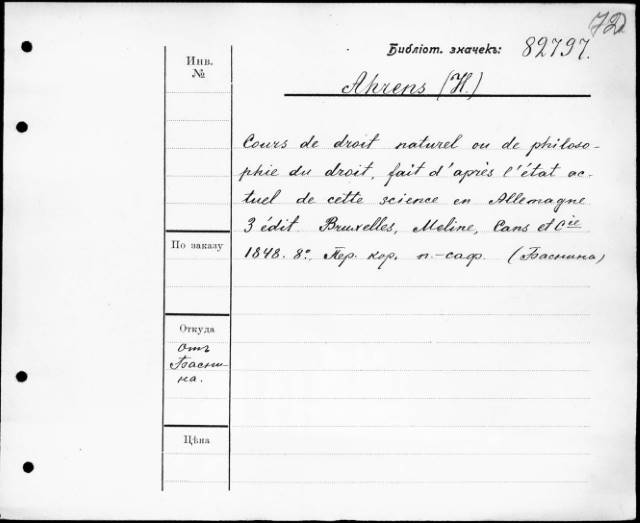 72
Библіот. значекъ: 82797.
Инв.
№
Ahrens (H.)
Cours de droit naturel ou de philoso-
phie du droit, fait d'après l'état ac-
tuel de cette science en Allemagne
3 édit. Bruxelles, Meline, Cans et Cie
1848. 8°. Пер. кор. п.-саф. (Баснина)
По заказу
Откуда
Отъ
Басни-
на.
Цѣна